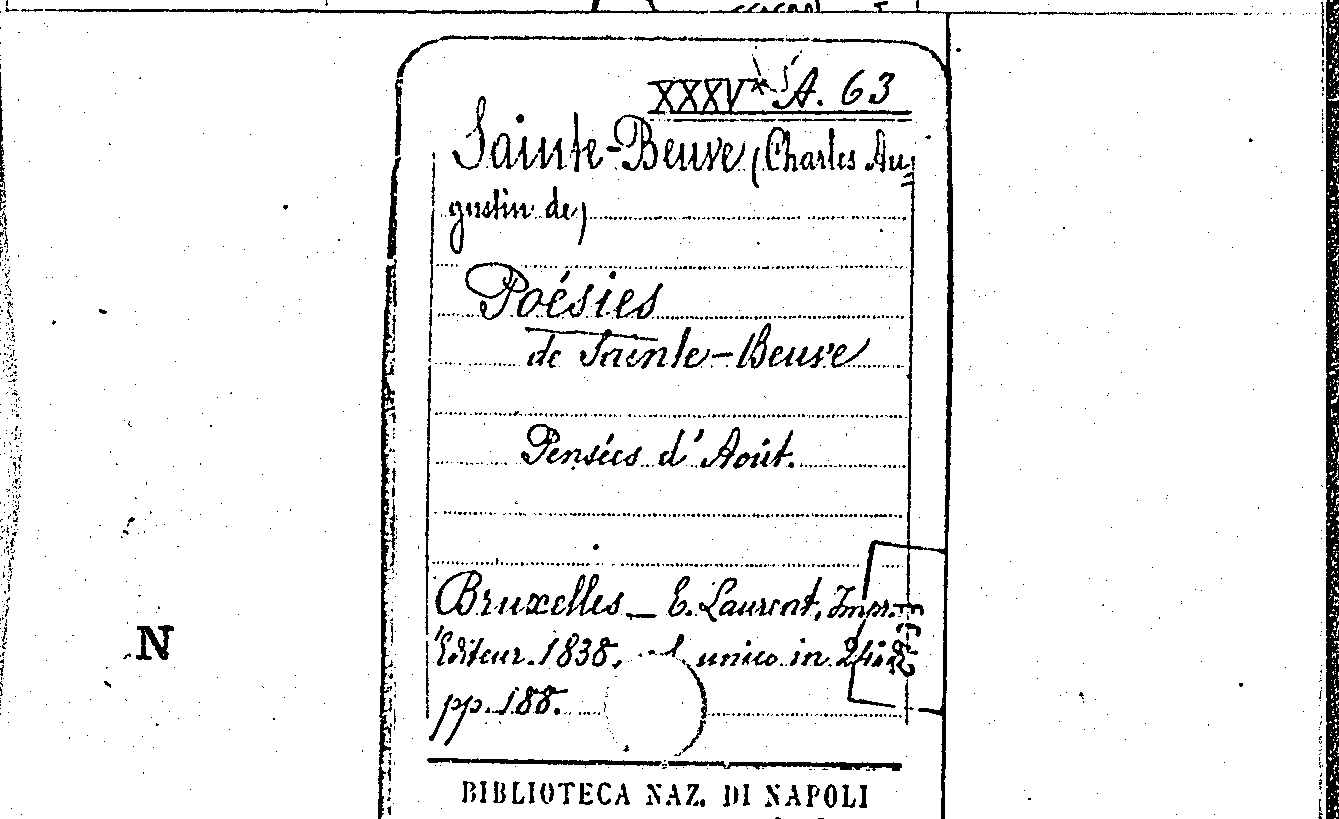 XXXV* A. 63
Sainte-Beuve (Charles Au=
gustin de)
Poésies
de Sainte-Beuve
Pensées d'Août.
Bruxelles — E. Laurent, Impr.
Editeur. 1838. unico in
pp. 188.
N
BIBLIOTECA NAZ. DI NAPOLI